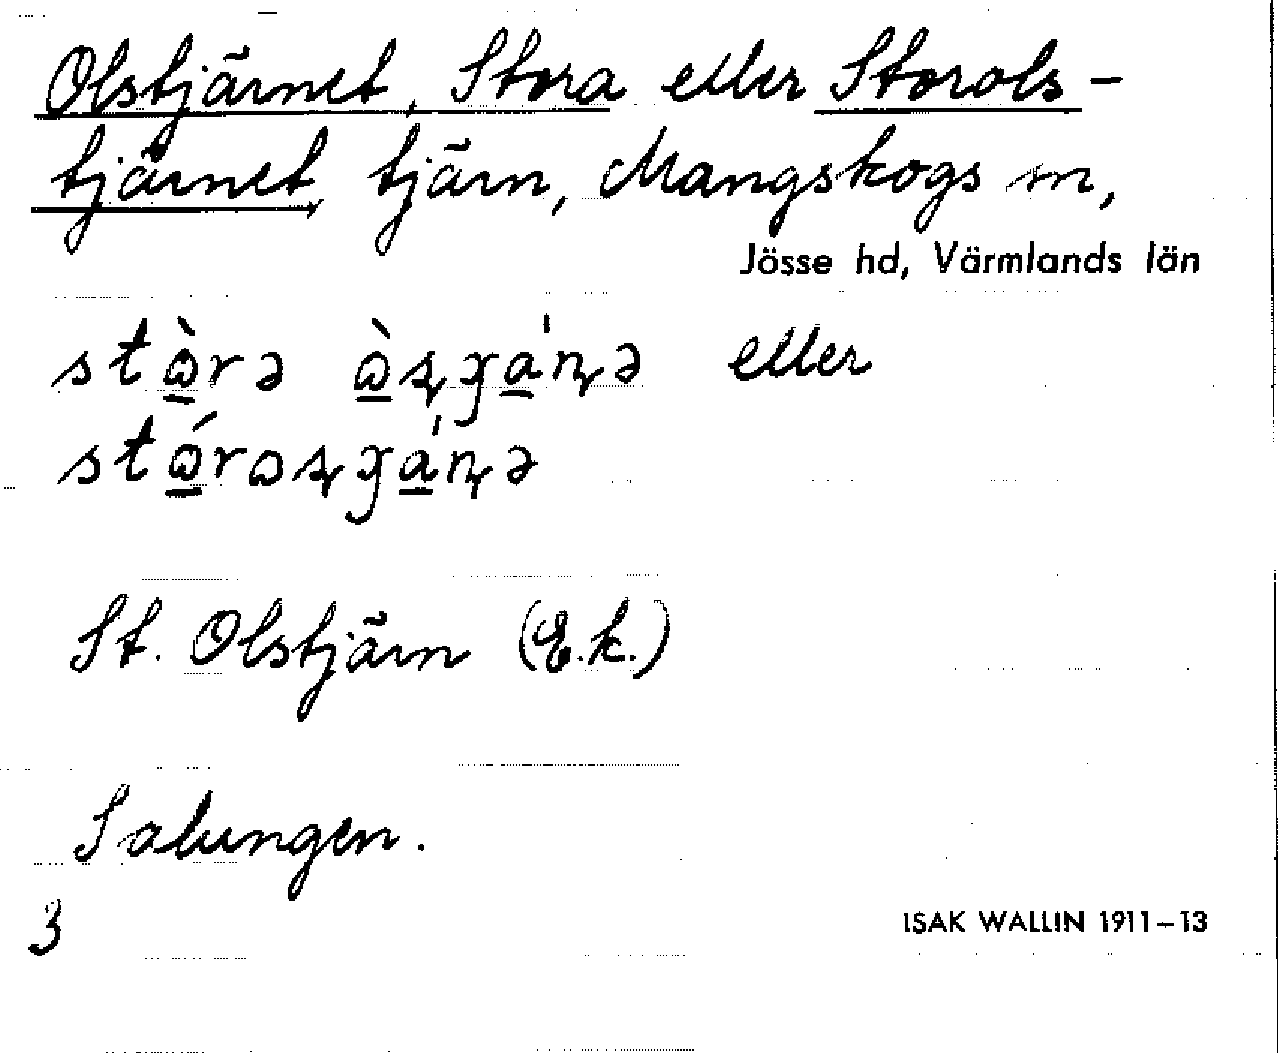 Olstjärnet, Stora eller Storols-
tjärnet, tjärn, Mangskogs sn,
Jösse hd, Värmlands län
eller
St. Olstjärn (E.k.)
Salungen.
3
ISAK WALLIN 1911–13